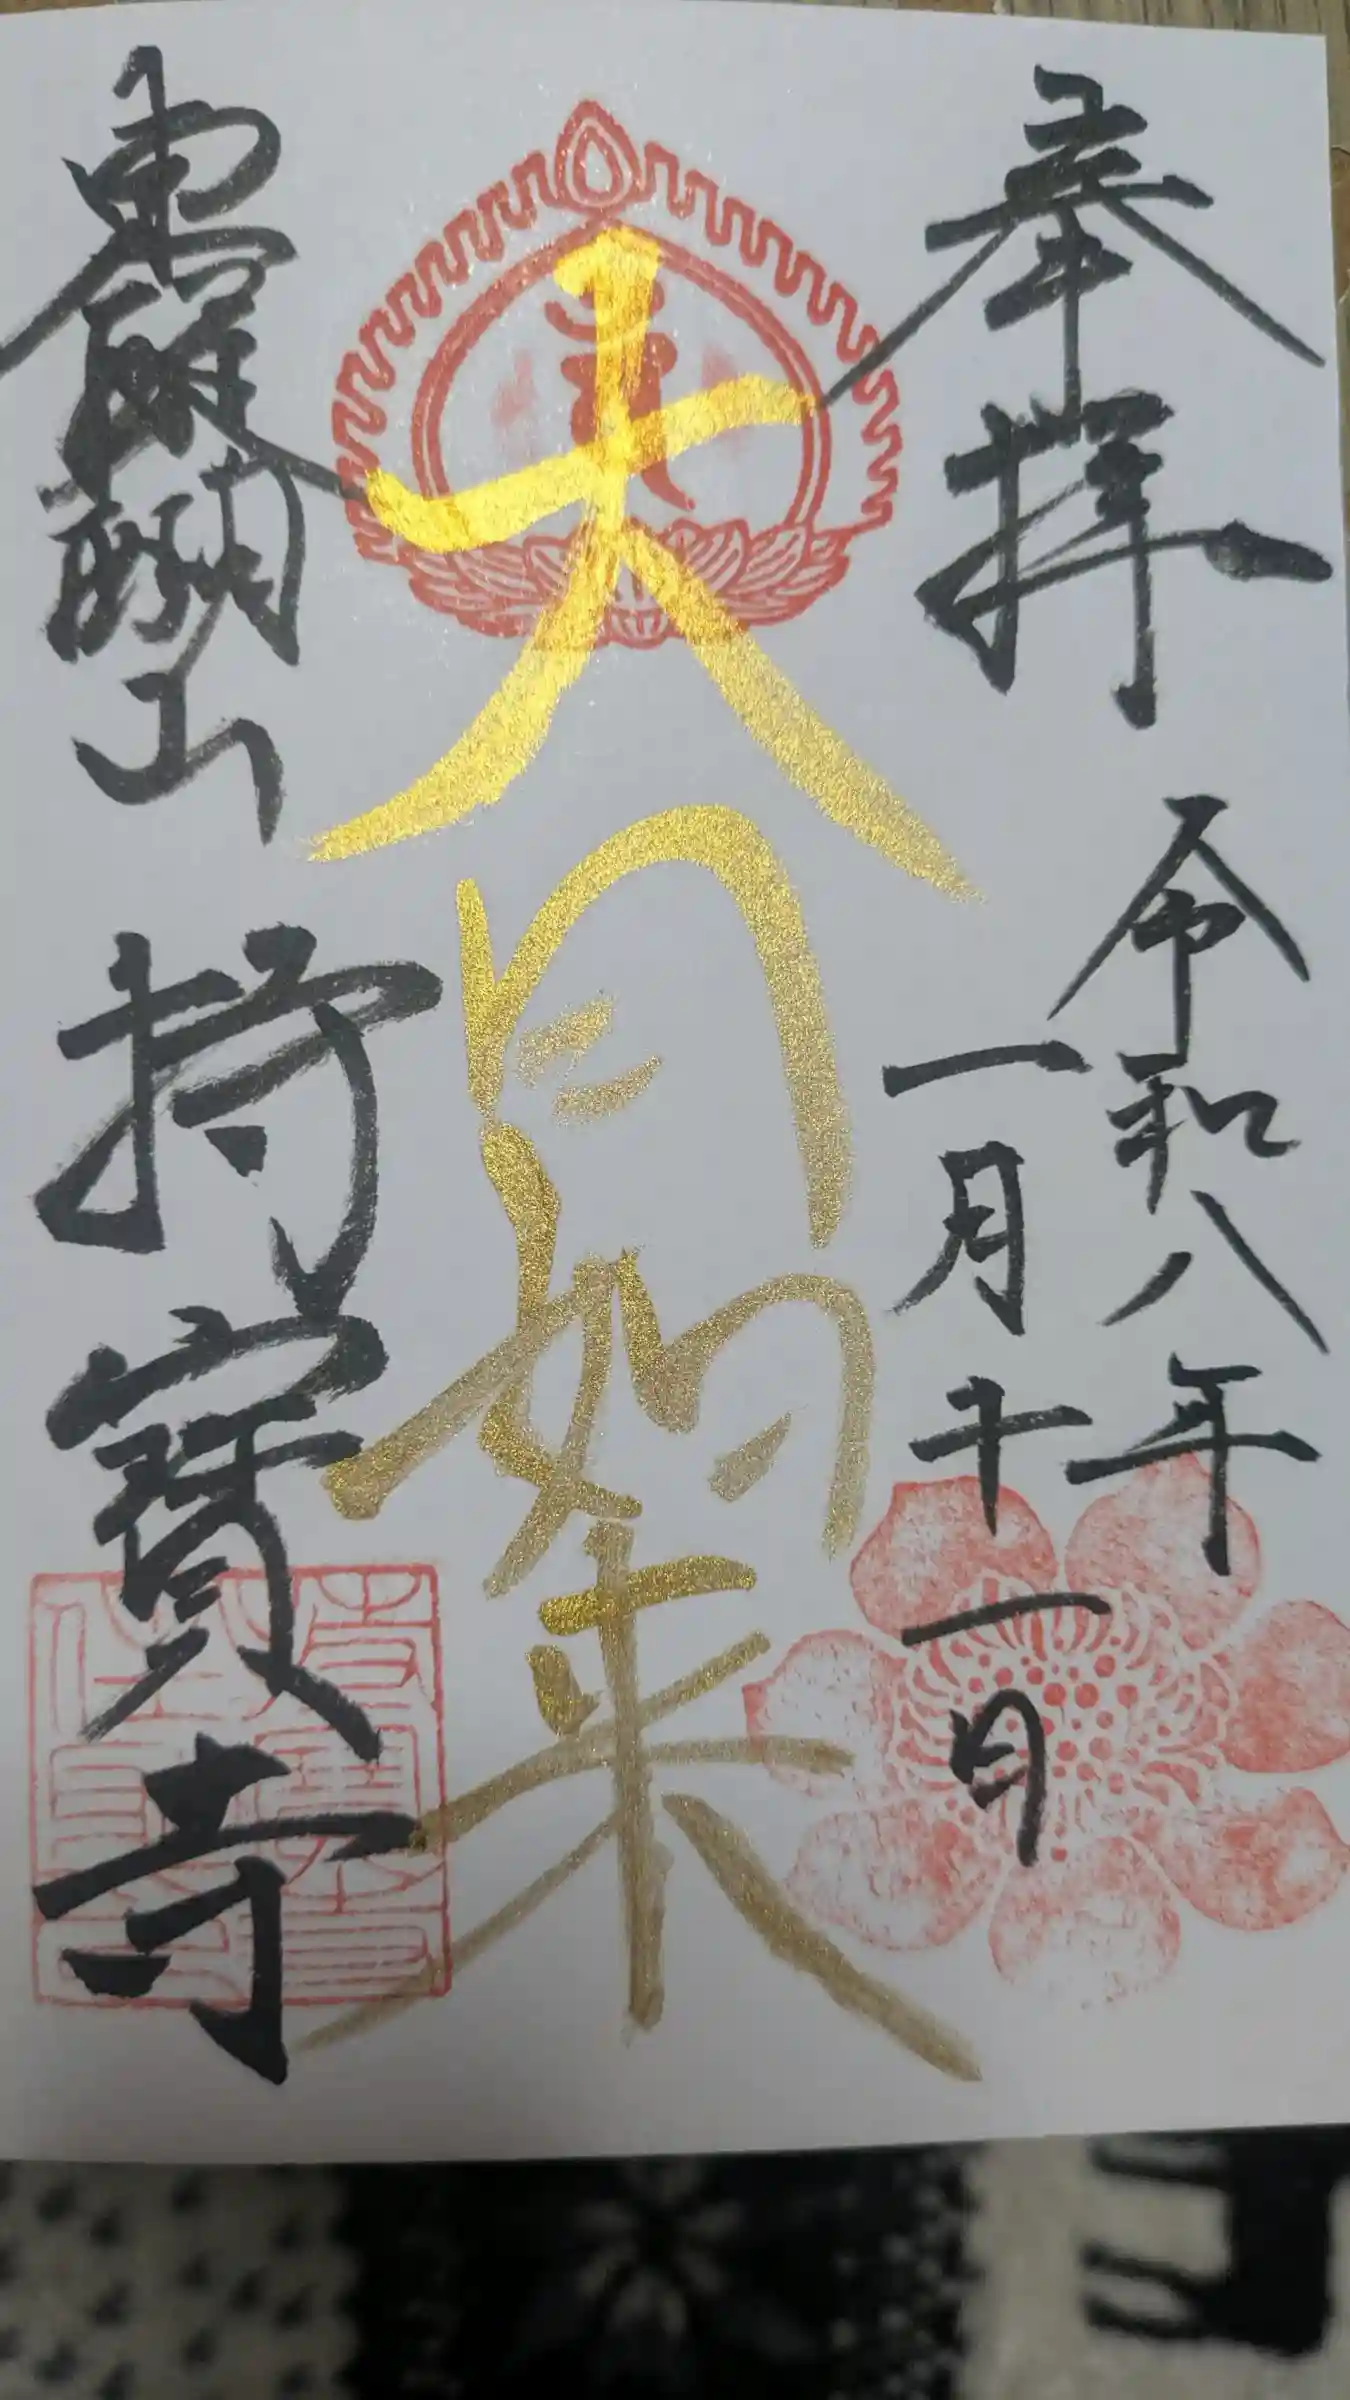 奉拝 令和八年
一月十一日
大日如来
山 持寶寺